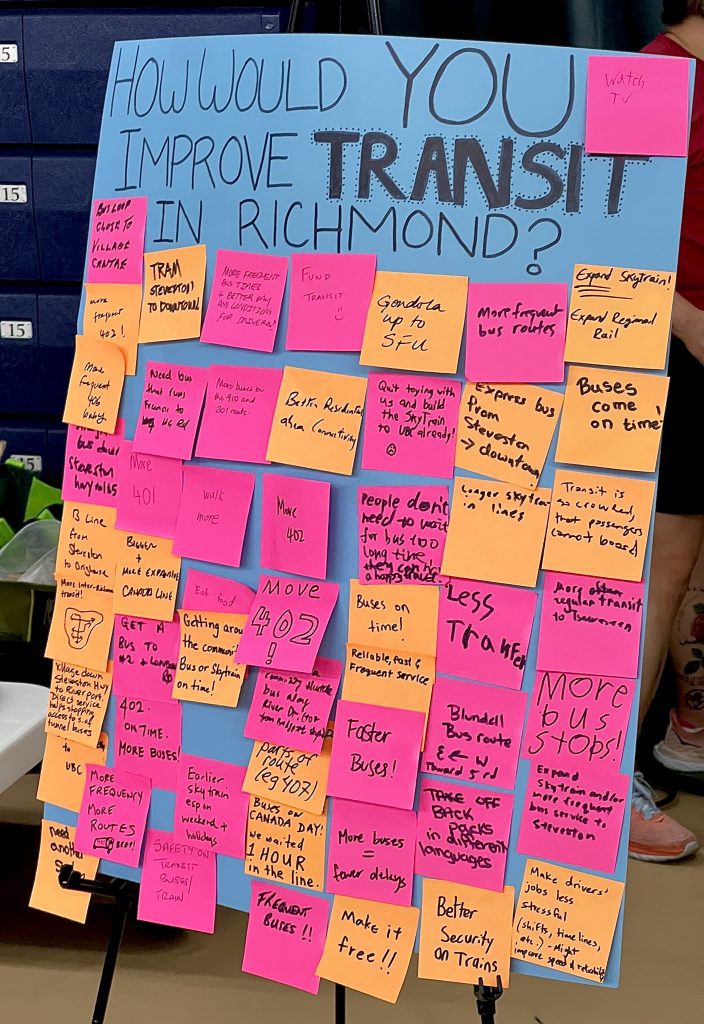 5
15
15
15
HOW WOULD YOU
IMPROVE TRANSIT
IN RICHMOND?
Watch
TV
BUS LOOP
CLOSE TO
VILLAGE
CENTRE
TRAM
STEVESTON
TO DOWNTOWN
MORE FREQUENT
BUS TIMES
+ BETTER PAY
AND CONDITIONS
FOR DRIVERS!
FUND
TRANSIT
Gondola
up to
SFU
More frequent
bus routes
Expand Skytrain!
Expand Regional
Rail
more
frequent
402!
More
frequent
406
Need bus
that runs
Francis to
Rd
More buses on
the 410 and
301 route.
Better Residential
area Connectivity
Quit toying with
us and build
the SkyTrain
to UBC already!
Express bus
from
Steveston
→ downtown
Buses
come
on time!
bus down
Steveston
hwy
More
401
walk
more
More
402
People don't
need to wait
for bus too
long time.
they can
a happy
Longer skytrain
lines
Transit is
so crowded,
that passengers
cannot board
B Line
from
Steveston
to Brighouse
BIGGER
+
MORE EXPANSIVE
CANADA LINE
Eat food
MORE
402
!
Buses on
time!
Less
Transfer
More often
regular transit
to
More inter-
transit!
GET A
BUS TO
#2 + LONDON
Getting around
the communi
Bus or Skytrain
on time!
Reliable, fast &
Frequent service
MORE
bus
STOPS!
Village down
Steveston Hwy
to Riverport.
Direct service
helps shopping
access to s. of
tunnel buses
402.
ON TIME.
MORE BUSES!
shuttle
bus along
River Dr. (for
Faster
Buses!
Blundell
Bus route
E ← W
toward 3rd
to
UBC
MORE
FREQUENCY
MORE
ROUTES
Earlier
skytrain
esp on
weekend +
holidays
parts of
route
(eg 407)
BUSES ON
CANADA DAY!
we waited
1 HOUR
in the line.
More buses
=
fewer delays
TAKE OFF
BACK
PACKS
in different
languages
Expand
Skytrain and/or
more frequent
bus service to
Steveston
need
another
SAFETY ON
TRANSIT
BUSES/
TRAIN
FREQUENT
BUSES!!
Make it
free!!
Better
Security
on Trains
Make drivers'
jobs less
stressful
(shifts, timelines,
etc.) - Might
improve speed & reliability